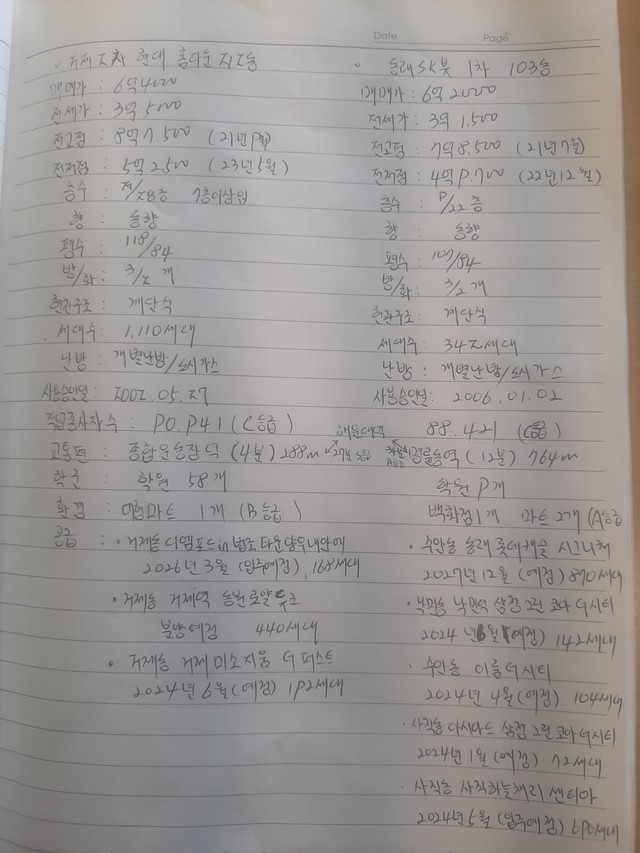 Date
Page
· 거제 2차 현대 홈타운 212동
매매가 : 6억4000
전세가 : 3억 5000
전고점 : 8억7,500 (21년1월)
전저점 : 5억 2,500 (23년5월)
층수 : 층 7층이상임
향 : 동향
평수 : 118/84
방/화 : 3/2 개
현관구조 : 계단식
세대수 : 1,110세대
난방 : 개별난방/도시가스
사용승인일 : 2002.05.27
직업종사자 수 : 90.941 (C등급)
교통편 : 종합운동장역 (4분) 288m
학군 : 학원 58개
환경 : 마트 1개 (B등급)
공급 : · 거제동 디엠포드 in 법조타운
2026년 3월 (입주예정), 168세대
· 거제동 거제역 동원로얄듀크
분양예정 440세대
· 거제동 거제 미소지움 더 퍼스트
2024년 6월 (예정) 192세대
· 동래SK뷰 1차 103동
매매가 : 6억 2000
전세가 : 3억 1,500
전고점 : 7억 8,500 (21년7월)
전저점 : 4억 9,700 (22년12월)
층수 : 9/22 층
향 : 동향
평수 : 107/84
방/화 : 3/2 개
현관구조 : 계단식
세대수 : 342세대
난방 : 개별난방/도시가스
사용승인일 : 2006.01.02
88.421 (C등급)
(12분) 764m
학원 9개
백화점1개, 마트 2개 (A등급
· 수안동 동래 롯데캐슬 시그니처
2027년 12월 (예정) 870세대
· 낙민동 낙민역 삼정그린코아 더시티
2024년 (예정) 142세대
· 수안동 이룸더시티
2024년 4월 (예정) 104세대
· 사직동 아시아드 삼정그린코아 더시티
2024년 1월 (예정) 72세대
· 사직동 사직하늘채리센티아
2024년 5월 (입주예정) 690세대